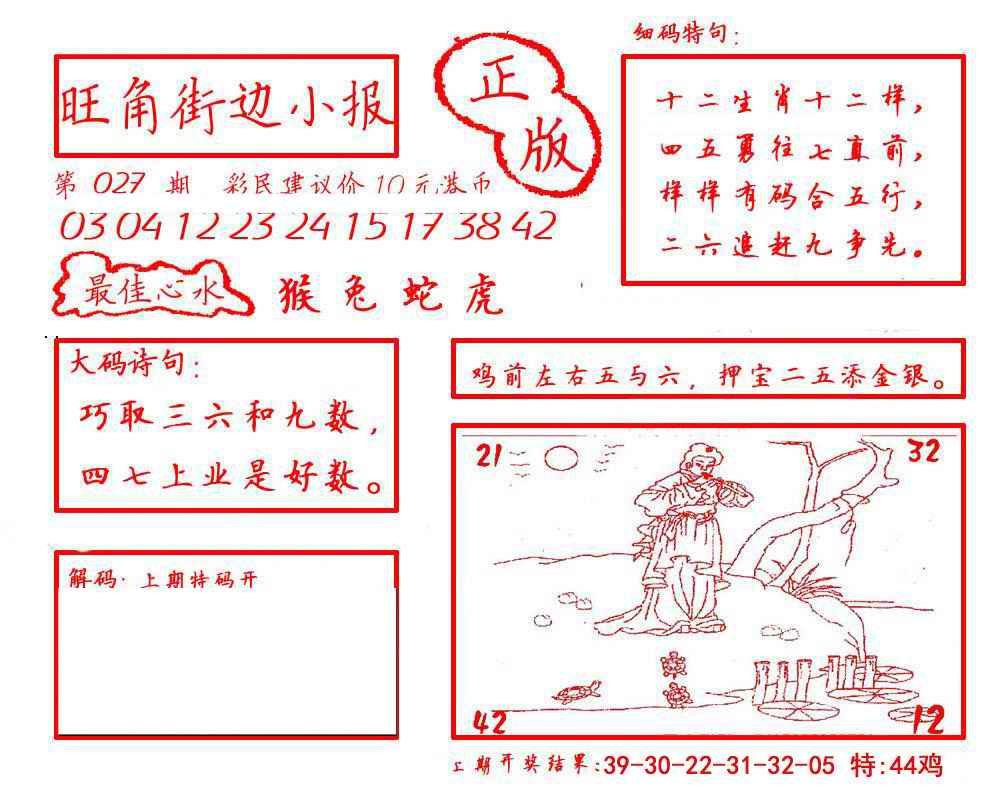 旺角街边小报
正版
第 027 期 彩民建议价10元港币
03 04 12 23 24 15 17 38 42
最佳心水 猴兔蛇虎
细码特句：
十二生肖十二样，
四五勇往七直前，
样样有码合五行，
二六追赶九争先。
大码诗句：
巧取三六和九数，
四七上业是好数。
鸡前左右五与六，押宝二五添金银。
解码·上期特码开
21
32
42
12
上期开奖结果:39-30-22-31-32-05 特:44鸡